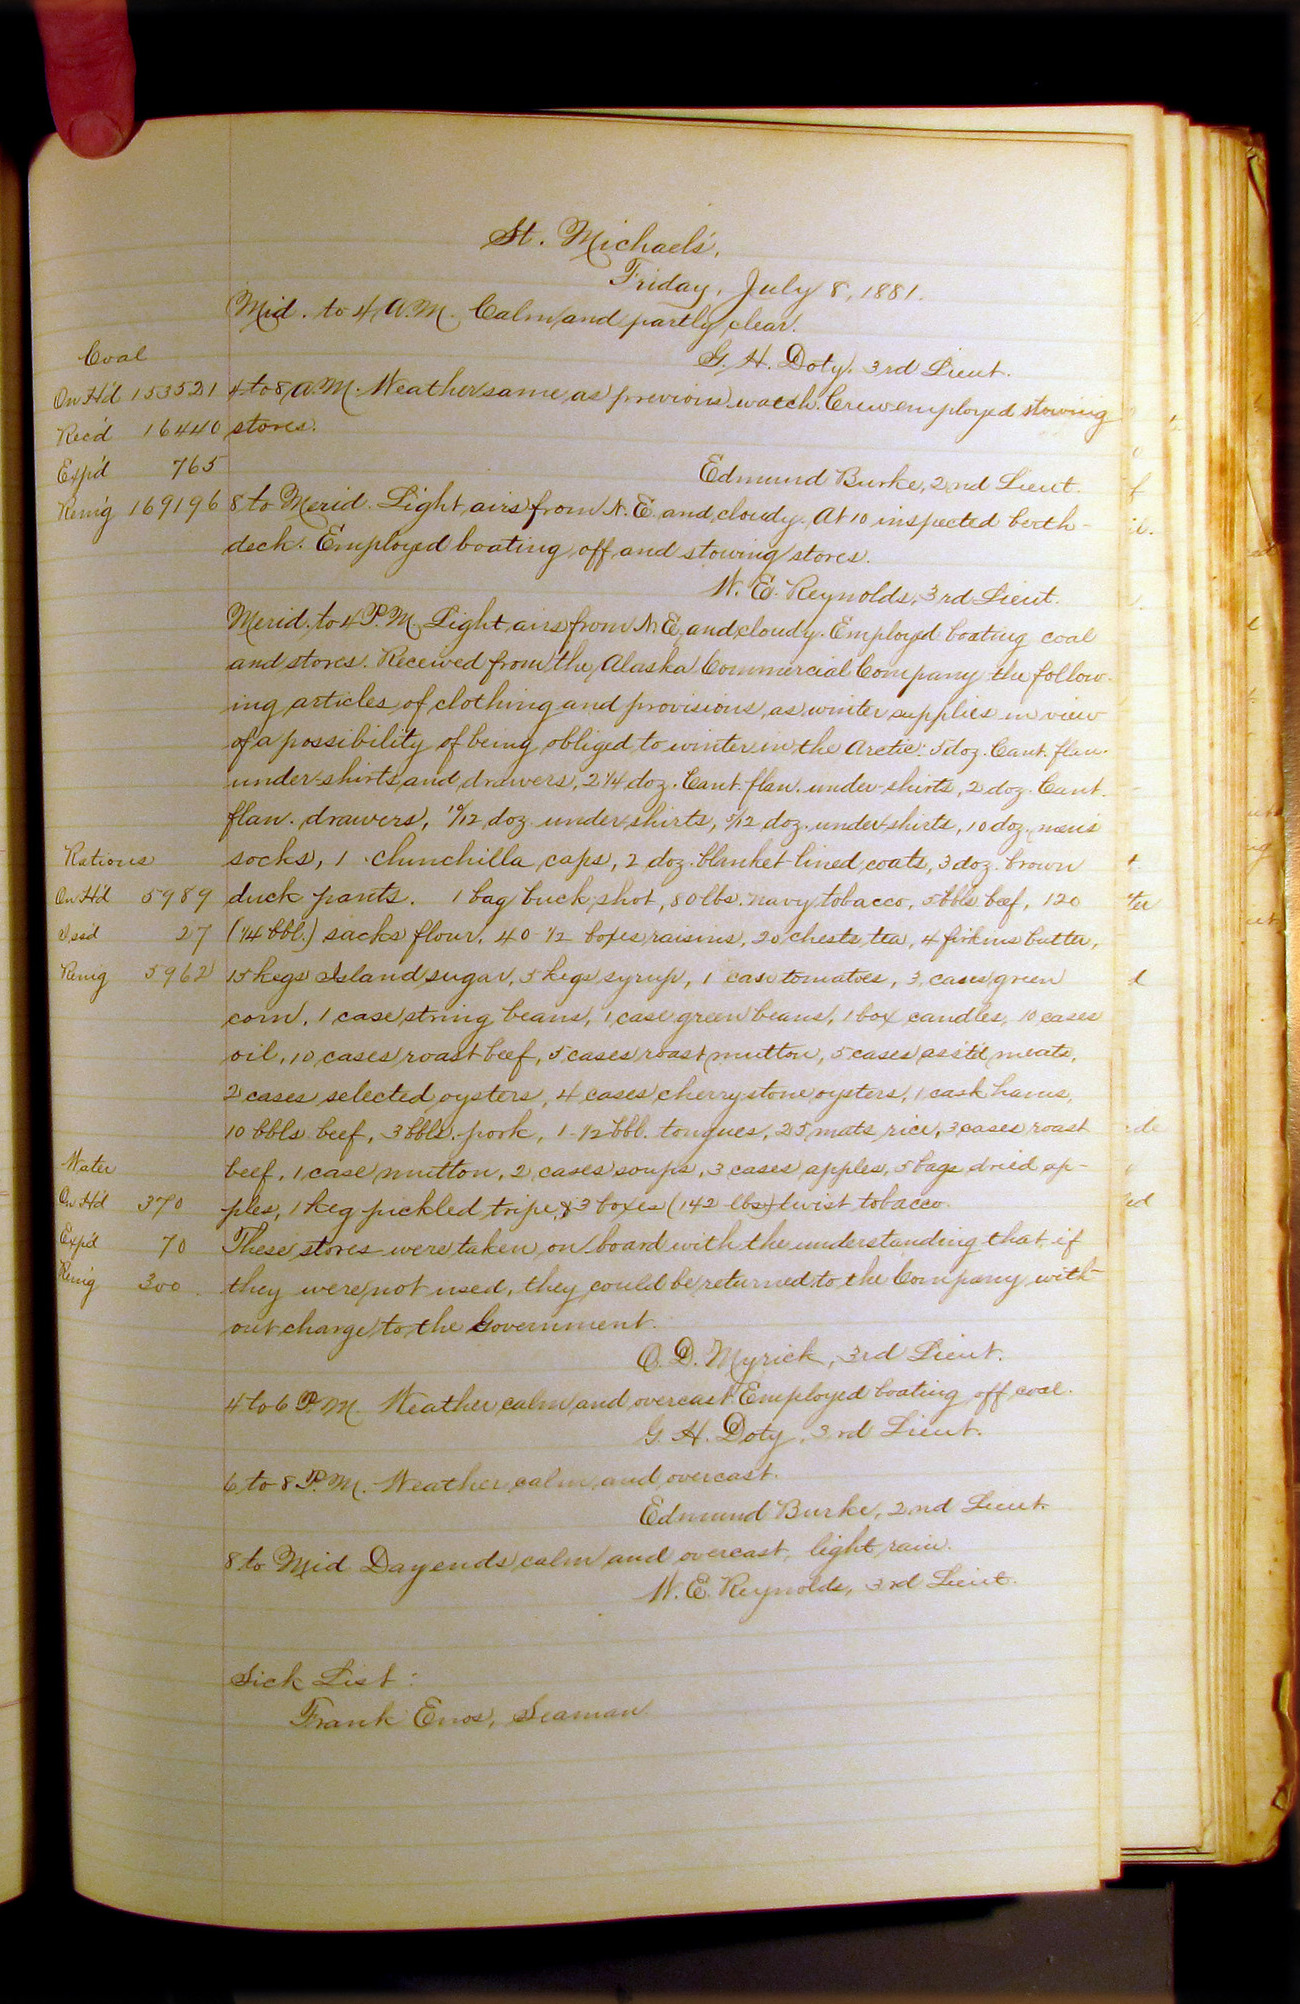 St. Michaels',
Friday, July 8, 1881.
Mid. to 4 A.M. Calm and partly clear.
G. H. Doty, 3rd Lieut.
Coal
On H'd 153521
Rec'd 16440
Exp'd 765
Remg 169196
4 to 8 A.M. Weather same as previous watch. Crew employed stowing
stores.
Edmund Burke, 2nd Lieut.
8 to Merid. Light airs from N.E. and cloudy. At 10 inspected berth-
deck. Employed boating off and stowing stores.
W. E. Reynolds, 3rd Lieut.
Merid. to 4 P.M. Light airs from N.E. and cloudy. Employed boating coal
and stores. Received from the Alaska Commercial Company the follow-
ing articles of clothing and provisions as winter supplies in view
of a possibility of being obliged to winter in the Arctic: 5 doz. Cant. flan.
under-shirts and drawers, 2 1/4 doz. Cant. flan. under-shirts, 2 doz. Cant.
flan. drawers, 10/12 doz. under shirts, 5/12 doz. under-shirts, 10 doz. men's
socks, 1 chinchilla caps, 2 doz. blanket lined coats, 3 doz. brown
duck pants. 1 bag buck shot, 80 lbs. navy tobacco, 5 bbls beef, 120
(1/4 bbl.) sacks flour, 40 1/2 boxes raisins, 20 chests tea, 4 firkins butter,
15 kegs Island sugar, 5 kegs syrup, 1 case tomatoes, 3 cases green
corn, 1 case string beans, 1 case green beans, 1 box candles, 10 cases
oil, 10 cases roast beef, 5 cases roast mutton, 5 cases ass'td meats,
2 cases selected oysters, 4 cases cherrystone oysters, 1 cask hams,
10 bbls beef, 3 bbls. pork, 1-1/2 bbl. tongues, 25 mats rice, 3 cases roast
beef, 1 case mutton, 2 cases soups, 3 cases apples, 5 bags dried ap-
ples, 1 keg pickled tripe & 3 boxes (142 lbs) twist tobacco.
These stores were taken on board with the understanding that if
they were not used, they could be returned to the Company with-
out charge to the Government.
O. D. Myrick, 3rd Lieut.
Rations
On H'd 5989
Iss'd 27
Remg 5962
Water
On H'd 370
Exp'd 70
Remg 300
4 to 6 P.M. Weather calm and overcast. Employed boating off coal.
G. H. Doty, 3rd Lieut.
6 to 8 P.M. Weather calm and overcast.
Edmund Burke, 2nd Lieut.
8 to Mid Day ends calm and overcast, light rain.
W. E. Reynolds, 3rd Lieut.
Sick List:
Frank Enos, Seaman